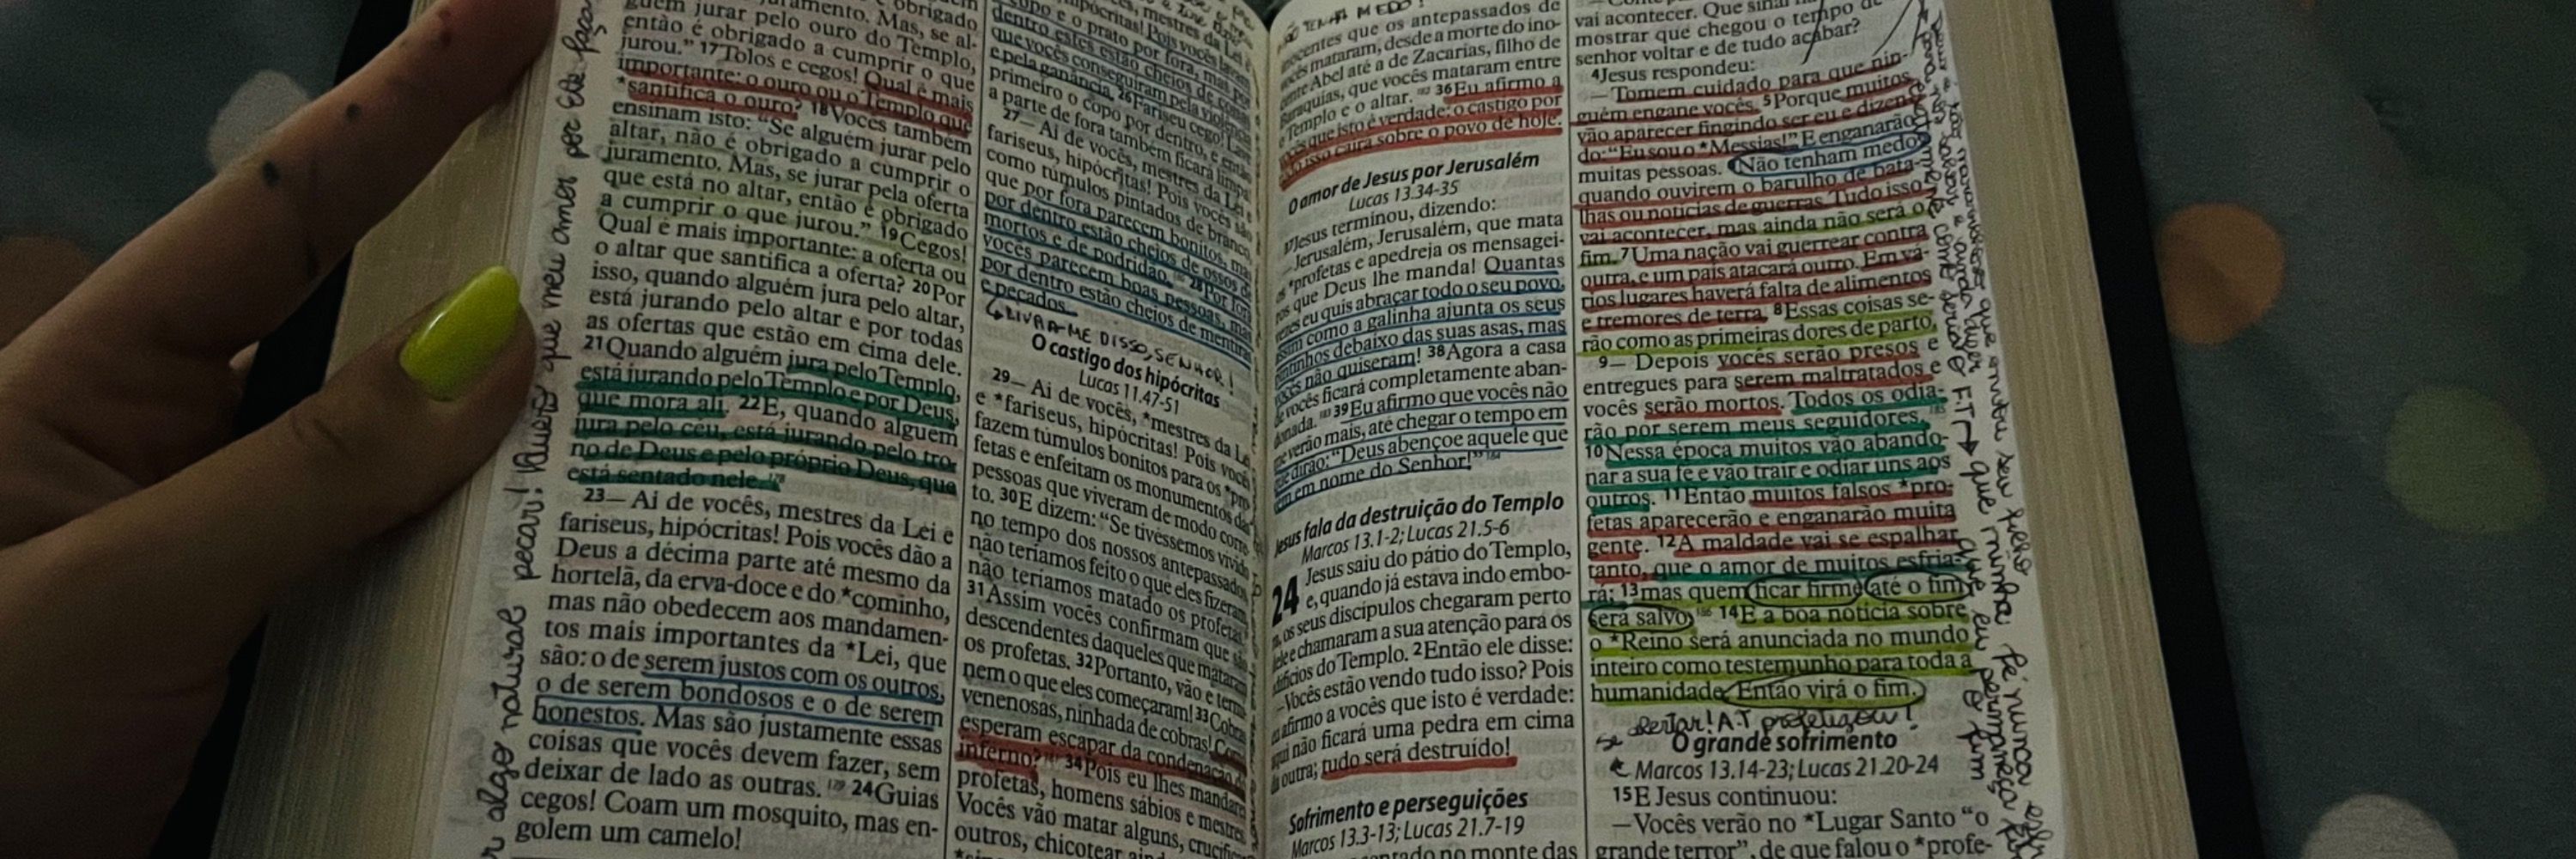 guém jurar pelo ouro do Templo,
então é obrigado a cumprir o que
jurou.” 17Tolos e cegos! Qual é mais
importante: o ouro ou o Templo que
*santifica o ouro? 18Vocês também
ensinam isto: “Se alguém jurar pelo
altar, não é obrigado a cumprir o
juramento. Mas, se jurar pela oferta
que está no altar, então é obrigado
a cumprir o que jurou.” 19Cegos!
Qual é mais importante: a oferta ou
o altar que santifica a oferta? 20Por
isso, quando alguém jura pelo altar,
está jurando pelo altar e por todas
as ofertas que estão em cima dele.
21Quando alguém jura pelo Templo,
está jurando pelo Templo e por Deus,
que mora ali. 22E, quando alguém
jura pelo céu, está jurando pelo tro-
no de Deus e pelo próprio Deus, que
está sentado nele.
23— Ai de vocês, mestres da Lei e
fariseus, hipócritas! Pois vocês dão a
Deus a décima parte até mesmo da
hortelã, da erva-doce e do *cominho,
mas não obedecem aos mandamen-
tos mais importantes da *Lei, que
são: o de serem justos com os outros,
o de serem bondosos e o de serem
honestos. Mas são justamente essas
coisas que vocês devem fazer, sem
deixar de lado as outras. 24Guias
cegos! Coam um mosquito, mas en-
golem um camelo!
algo natural pecar! que meu amor por Ele
copo e o prato por fora, mas por
dentro estes estão cheios de coisas
que vocês conseguiram pela violência
e pela ganância. 26Fariseu cego! Lave
primeiro o copo por dentro, e então
a parte de fora também ficará limpa!
27— Ai de vocês, mestres da Lei e
fariseus, hipócritas! Pois vocês são
como túmulos pintados de branco,
que por fora parecem bonitos, mas
por dentro estão cheios de ossos de
mortos e de podridão. 28Por fora
vocês parecem boas pessoas, mas
por dentro estão cheios de mentiras
e pecados.
LIVRA-ME DISSO, SENHOR!
O castigo dos hipócritas
Lucas 11.47-51
29— Ai de vocês, *mestres da Lei
e *fariseus, hipócritas! Pois vocês
fazem túmulos bonitos para os *pro
fetas e enfeitam os monumentos das
pessoas que viveram de modo corre
to. 30E dizem: “Se tivéssemos vivido
no tempo dos nossos antepassados,
não teríamos feito o que eles fizeram,
não teríamos matado os profetas.”
31Assim vocês confirmam que são
descendentes daqueles que mataram
os profetas. 32Portanto, vão e
nem o que eles começaram! 33Cobras
venenosas, ninhada de cobras! Como
esperam escapar da condenação do
inferno? 34Pois eu lhes mandarei
profetas, homens sábios e mestres.
Vocês vão matar alguns,
outros, chicotear
TENHAM MEDO!
inocentes que os antepassados de
vocês mataram, desde a morte do ino-
cente Abel até a de Zacarias, filho de
Baraquias, que vocês mataram entre
o Templo e o altar. 36Eu afirmo a
vocês que isto é verdade: o castigo por
tudo isso cairá sobre o povo de hoje.
O amor de Jesus por Jerusalém
Lucas 13.34-35
37Jesus terminou, dizendo:
— Jerusalém, Jerusalém, que mata
os *profetas e apedreja os mensagei-
ros que Deus lhe manda! Quantas
vezes eu quis abraçar todo o seu povo,
assim como a galinha ajunta os seus
pintinhos debaixo das suas asas, mas
vocês não quiseram! 38Agora a casa
de vocês ficará completamente aban-
donada. 39Eu afirmo que vocês não
me verão mais, até chegar o tempo em
que dirão: “Deus abençoe aquele que
vem em nome do Senhor!”
Jesus fala da destruição do Templo
Marcos 13.1-2; Lucas 21.5-6
24 Jesus saiu do pátio do Templo,
e, quando já estava indo embo-
ra, os seus discípulos chegaram perto
dele e chamaram a sua atenção para os
edifícios do Templo. 2Então ele disse:
—Vocês estão vendo tudo isso? Pois
eu afirmo a vocês que isto é verdade:
aqui não ficará uma pedra em cima
da outra; tudo será destruído!
Sofrimento e perseguições
Marcos 13.3-13; Lucas 21.7-19
no monte das
vai acontecer. Que sinal
mostrar que chegou o tempo de
senhor voltar e de tudo acabar?
4Jesus respondeu:
—Tomem cuidado para que nin-
guém engane vocês. 5Porque muitos
vão aparecer fingindo ser eu e dizen-
do: “Eu sou o *Messias!” E enganarão
muitas pessoas. Não tenham medo
quando ouvirem o barulho de bata-
lhas ou notícias de guerras. Tudo isso
vai acontecer, mas ainda não será o
fim. 7Uma nação vai guerrear contra
outra, e um país atacará outro. Em vá-
rios lugares haverá falta de alimentos
e tremores de terra. 8Essas coisas se-
rão como as primeiras dores de parto.
9— Depois vocês serão presos e
entregues para serem maltratados e
vocês serão mortos. Todos os odia-
rão por serem meus seguidores.
10Nessa época muitos vão abando-
nar a sua fé e vão trair e odiar uns aos
outros. 11Então muitos falsos *pro-
fetas aparecerão e enganarão muita
gente. 12A maldade vai se espalhar
tanto, que o amor de muitos esfria-
rá; 13mas quem ficar firme até o fim
será salvo. 14E a boa notícia sobre
o *Reino será anunciada no mundo
inteiro como testemunho para toda a
humanidade. Então virá o fim.
A.T profetizou!
O grande sofrimento
Marcos 13.14-23; Lucas 21.20-24
15E Jesus continuou:
—Vocês verão no *Lugar Santo “o
grande terror”, de que falou o *profe-
que minha fé nunca
que eu permaneça